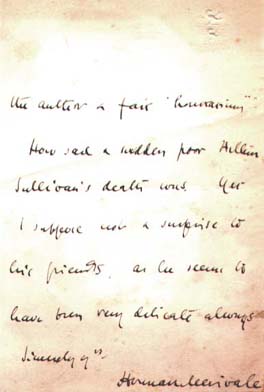 the author a fair "honorarium"
How sad & sudden poor
Sullivan's death was. Yet
I suppose not a surprise to
his friends, as he seems to
have been very delicate always
Sincerely yrs
Herman Merivale